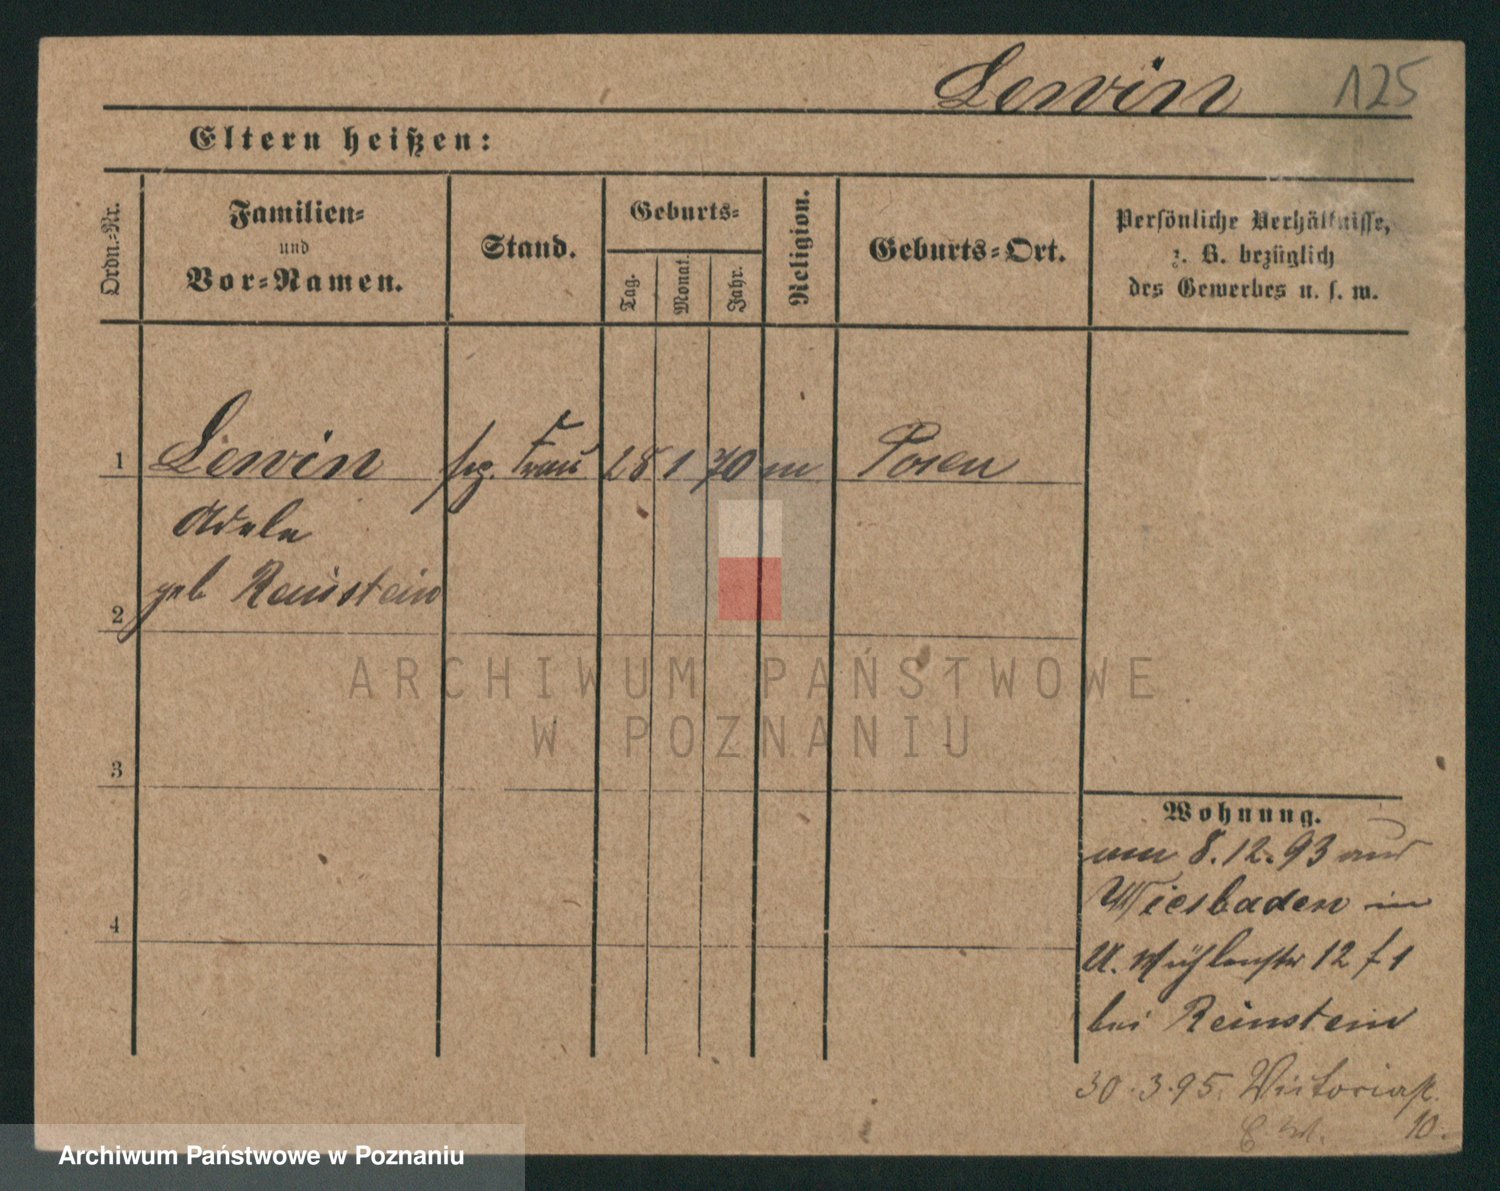 Lewin 125
Eltern heißen:
Ordn.-Nr.
Familien-
und
Vor-Namen.
Stand.
Geburts-
Tag.
Monat.
Jahr.
Religion.
Geburts-Ort.
Persönliche Verhältnisse,
z. B. bezüglich
des Gewerbes u. s. w.
1 Lewin Frau 28 1 70 m Posen
Adele
geb Reinstein
2
3
4
Wohnung.
am 8.12.93 aus
Wiesbaden in
U. Mühlenstr 12 f 1
bei Reinstein
30.3.95. Victoriast.
10.
ARCHIWUM PAŃSTWOWE
W POZNANIU
Archiwum Państwowe w Poznaniu